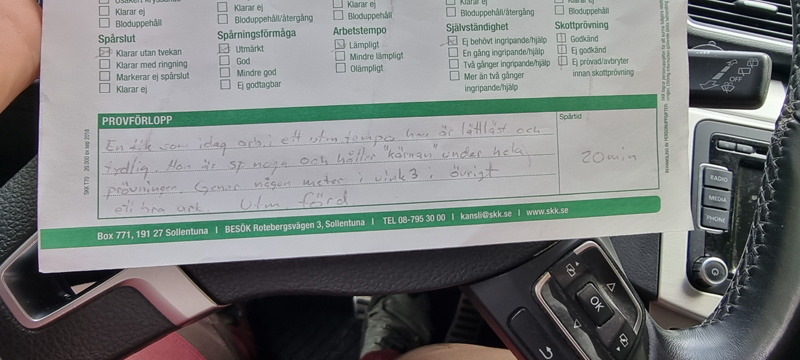 Klarar ej
Bloduppehåll
Klarar ej
Bloduppehåll/återgång
Klarar ej
Bloduppehåll
Klarar ej
Bloduppehåll/återgång
Klarar ej
Bloduppehåll
Spårslut
Klarar utan tvekan
Klarar med ringning
Markerar ej spårslut
Klarar ej
Spårningsförmåga
Utmärkt
God
Mindre god
Ej godtagbar
Arbetstempo
Lämpligt
Mindre lämpligt
Olämpligt
Självständighet
Ej behövt ingripande/hjälp
En gång ingripande/hjälp
Två gånger ingripande/hjälp
Mer än två gånger
ingripande/hjälp
Skottprövning
Godkänd
Ej godkänd
Ej prövad/avbryter
innan skottprövning
PROVFÖRLOPP
En tik som idag arb. i ett utm. tempo hon är lättläst och
tydlig. Hon är sp noga och håller "kärnan" under hela
prövningen. Genar någon meter i vink 3 i övrigt
ett bra ark. Utm. förd
Spårtid
20 min
Box 771, 191 27 Sollentuna I BESÖK Rotebergsvägen 3, Sollentuna I TEL 08-795 30 00 I kansli@skk.se I www.skk.se
OFF
RADIO
MEDIA
PHONE
OK